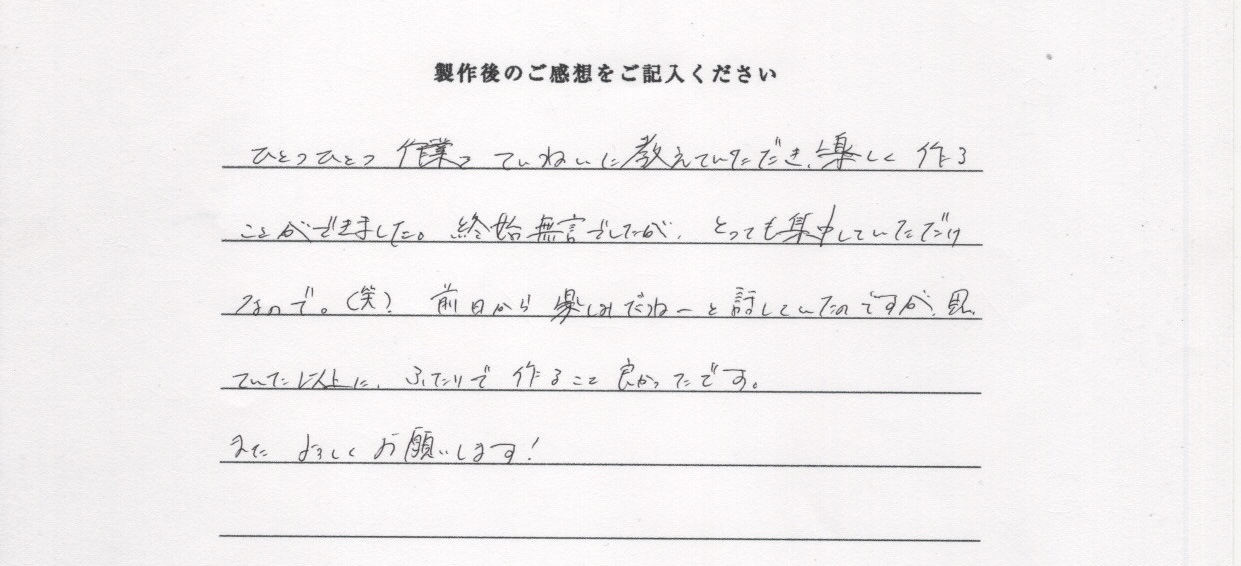 製作後のご感想をご記入ください
ひとつひとつ 作業を ていねいに教えていただき、楽しく 作る
ことができました。終始無言でしたが、とっても集中していただけ
なので。(笑) 前日から 楽しみだねーと話していたのですが、思っ
ていた以上に、ふたりで 作ること 良かったです。
また よろしく お願いします!